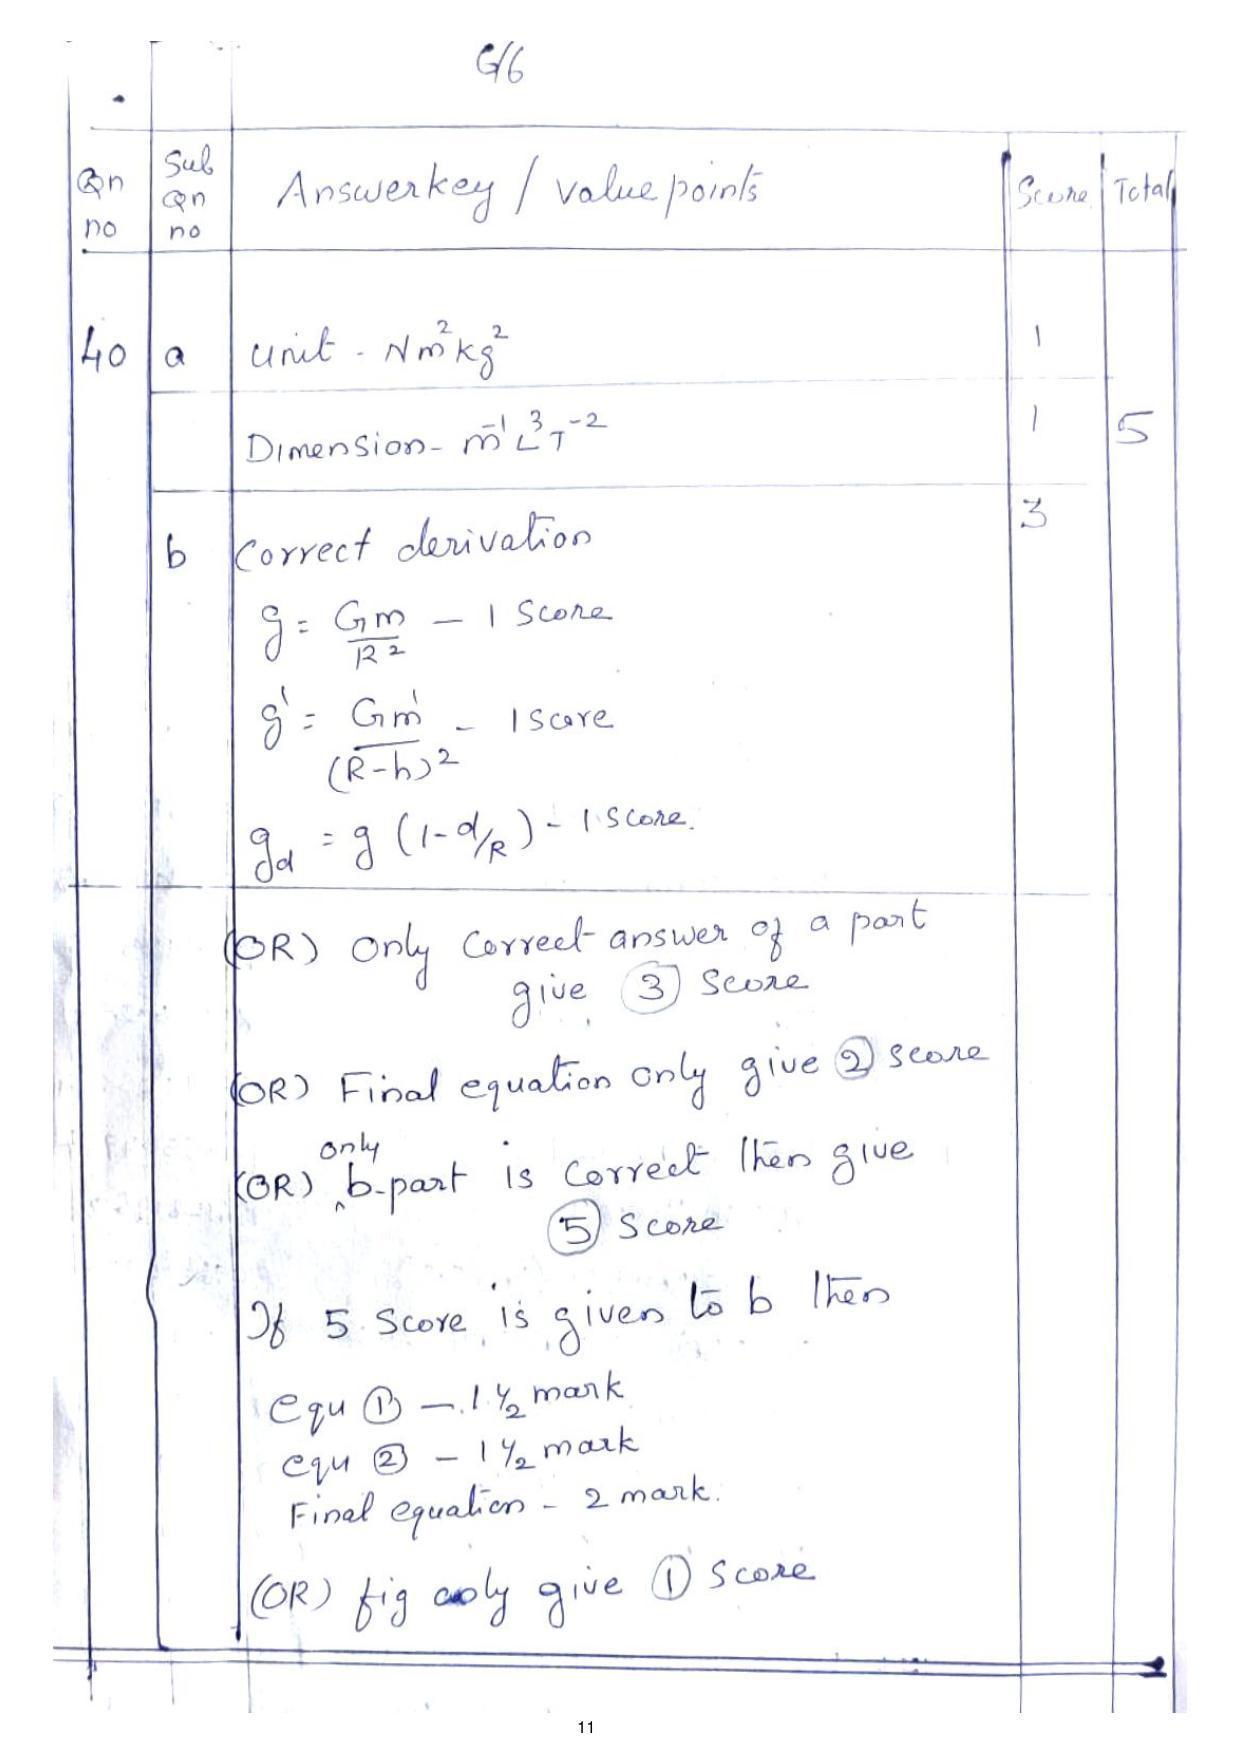 G/6
Qn no
Sub Qn no
Answerkey / value points
Score
Total
40 a Unit - Nm²kg² 1
Dimension - m⁻¹L³T⁻² 1 5
b Correct derivation 3
g = Gm/R² – 1 Score
g' = Gm'/(R-h)² – 1 Score
gd = g (1-d/R) – 1 Score.
(OR) Only Correct answer of a part
give ③ Score
(OR) Final equation only give ② score
(OR) only b-part is correct then give
⑤ Score
If 5 Score is given to b then
equ ① – 1 1/2 mark
equ ② – 1 1/2 mark
Final equation - 2 mark.
(OR) fig only give ① Score
11